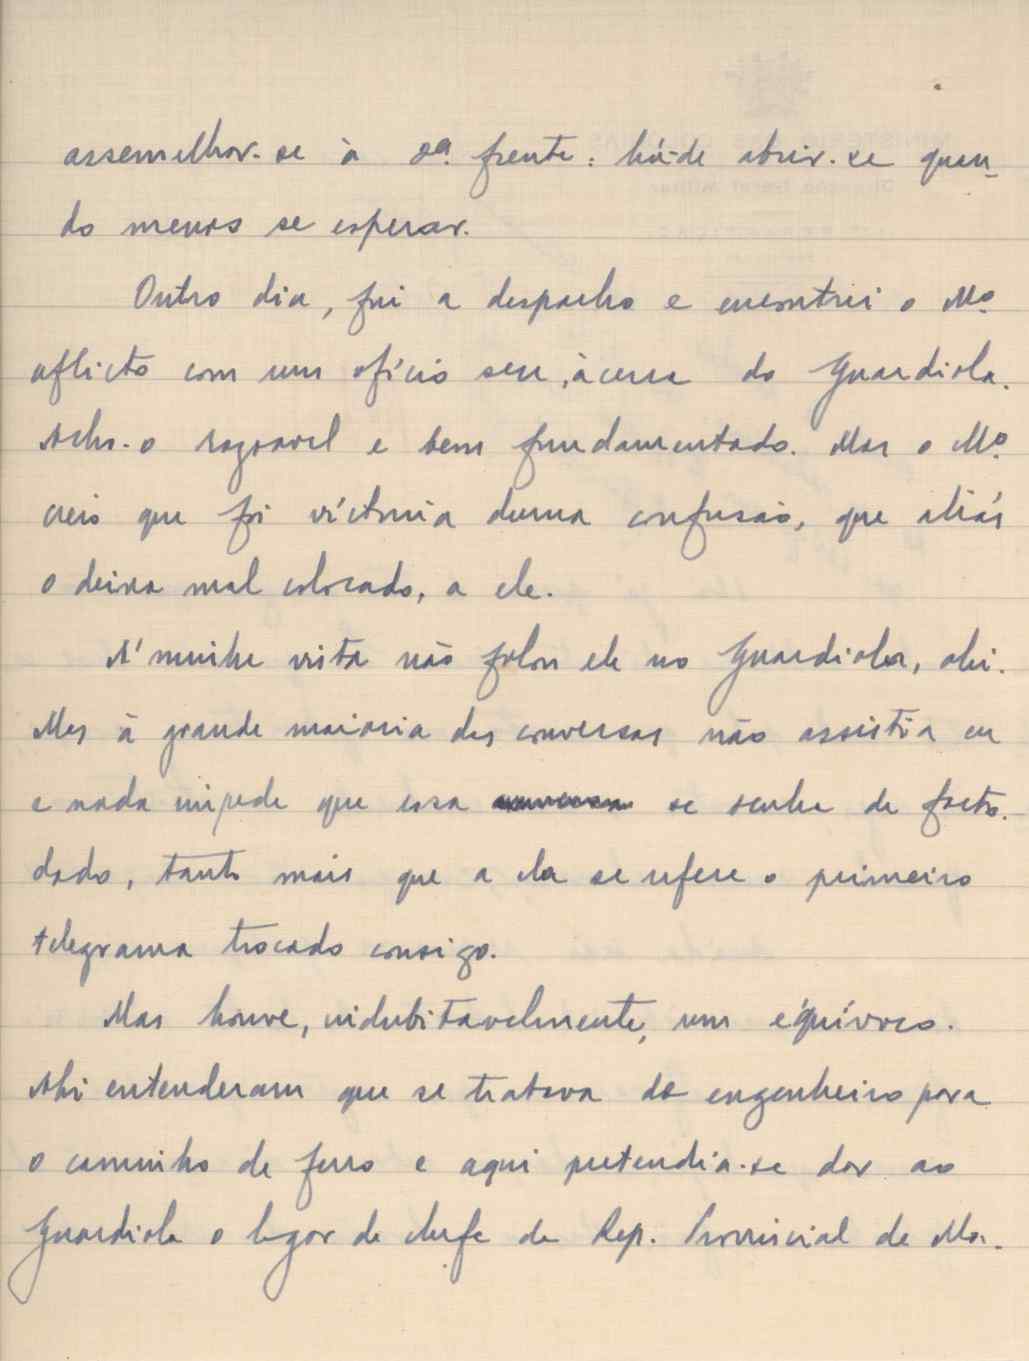 assemelhar-se à 2ª frente: há-de abrir-se quan-
do menos se esperar.
Outro dia, fui a despacho e encontrei o Mº
aflicto com um ofício seu, àcerca do Guardiola.
Acho-o razoavel e bem fundamentado. Mas o Mº
creio que foi víctima duma confusão, que aliás
o deixa mal colocado, a ele.
A' minha vista não falou ele no Guardiola, ahi.
Mas à grande maioria das conversas não assistia eu
e nada impede que essa se tenha de facto
dado, tanto mais que a ela se refere o primeiro
telegrama trocado consigo.
Mas houve, indubitavelmente, um équívoco.
Ahi entenderam que se tratava de engenheiro para
o caminho de ferro e aqui pretendia-se dar ao
Guardiola o lugar de chefe da Rep. Provincial de Ma-